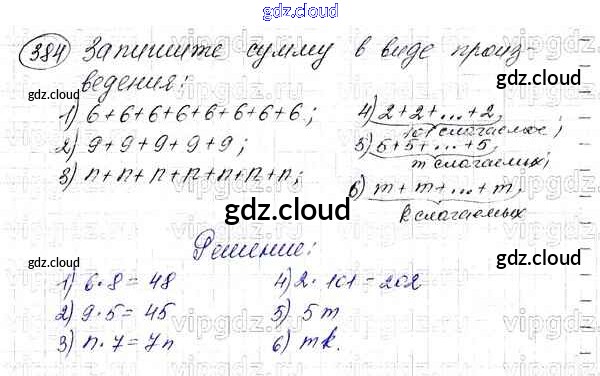 gdz.cloud
384 Запишите сумму в виде произ-
ведения:
1) 6+6+6+6+6+6+6+6;
2) 9+9+9+9+9;
3) n+n+n+n+n+n+n;
4) 2+2+...+2,
101 слагаемое;
5) 5+5+...+5,
m слагаемых;
6) m+m+...+m,
k слагаемых
Решение:
1) 6·8=48
2) 9·5=45
3) n·7=7n
4) 2·101=202
5) 5m
6) mk.
gdz.cloud
gdz.cloud
gdz.cloud
gdz.cloud
gdz.cloud
gdz.cloud
gdz.cloud
gdz.cloud